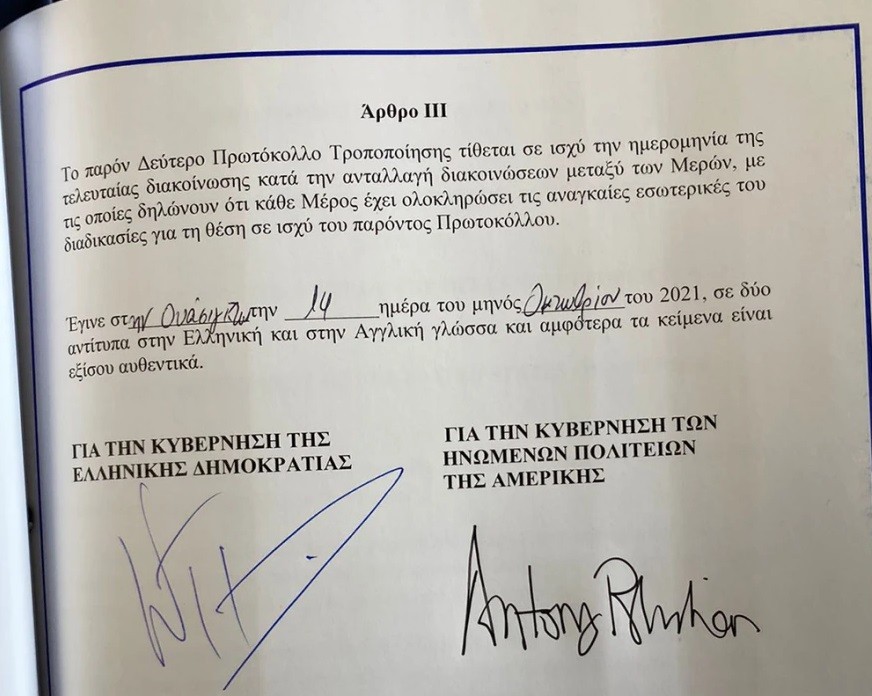 Άρθρο ΙΙΙ
Το παρόν Δεύτερο Πρωτόκολλο Τροποποίησης τίθεται σε ισχύ την ημερομηνία της
τελευταίας διακοίνωσης κατά την ανταλλαγή διακοινώσεων μεταξύ των Μερών, με
τις οποίες δηλώνουν ότι κάθε Μέρος έχει ολοκληρώσει τις αναγκαίες εσωτερικές του
διαδικασίες για τη θέση σε ισχύ του παρόντος Πρωτοκόλλου.
Έγινε στην Ουάσιγκτων την 14 ημέρα του μηνός Οκτωβρίου του 2021, σε δύο
αντίτυπα στην Ελληνική και στην Αγγλική γλώσσα και αμφότερα τα κείμενα είναι
εξίσου αυθεντικά.
ΓΙΑ ΤΗΝ ΚΥΒΕΡΝΗΣΗ ΤΗΣ
ΕΛΛΗΝΙΚΗΣ ΔΗΜΟΚΡΑΤΙΑΣ
ΓΙΑ ΤΗΝ ΚΥΒΕΡΝΗΣΗ ΤΩΝ
ΗΝΩΜΕΝΩΝ ΠΟΛΙΤΕΙΩΝ
ΤΗΣ ΑΜΕΡΙΚΗΣ
Antony Blinken